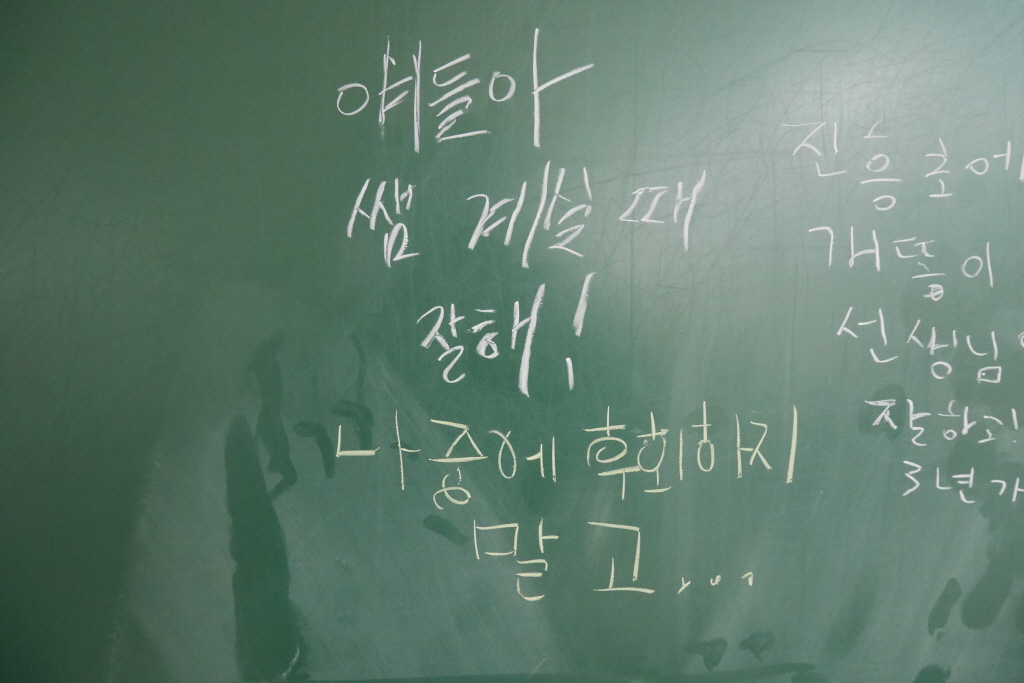 얘들아
쌤 계실 때
잘해!
나중에 후회하지
말고...
진흥초에
개똘이
선생님
잘하고!
3년